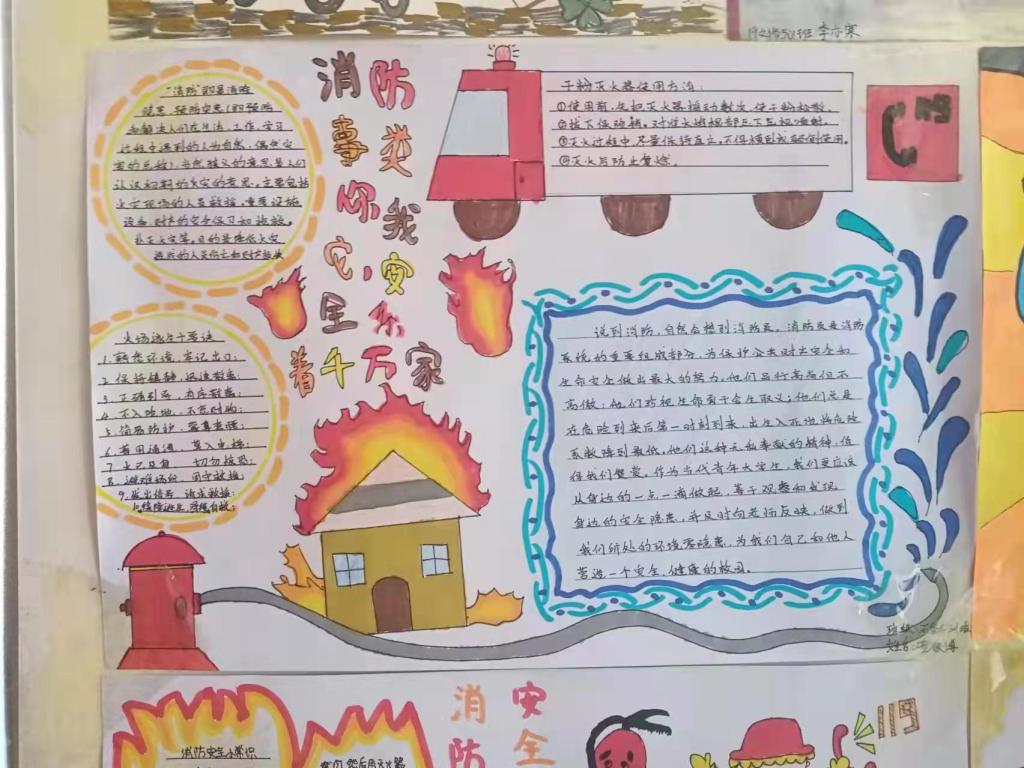 李亦寒
消防
事类
你我
它,安
全系
着千万家
"消防"即是消除
隐患、预防灾患(即预防
和解决人们在生活、工作、学习
过程中遇到的人为自然、偶然灾
害的总称),当然狭义的意思是人们
认识初期的火灾的意思,主要包括
火灾现场的人员救援,重要设施
设备、财产的安全保卫和抢救,
扑灭火灾等。目的是降低火灾
造成的人员伤亡和财产损失
火场逃生十要诀
1.熟悉环境,牢记出口;
2.保持镇静,迅速撤离;
4.不入险地,不贪财物;
5.简易防护,
6.善用通道,莫入电梯;
8.避难场所,固守救援;
9.发出信号,请求救援;
干粉灭火器使用方法:
①使用前,先把灭火器摇动数次,使干粉松散。
②拔下保险销,对准火焰根部压下压把喷射。
③灭火过程中,尽量保持直立,不得横卧或颠倒使用。
④灭火后防止复燃。
说到消防,自然会想到消防员。消防员是消防
系统的重要组成部分,为保护公共财产安全和
生命安全做出最大的努力,他们品行高尚但不
高傲;他们珍视生命勇于舍生取义;他们总是
在危险到来后第一时刻到来,出生入死地将危险
系数降到最低,他们这种无私奉献的精神,值
得我们赞美。作为当代青年大学生,我们更应该
从身边的一点一滴做起,善于观察和发现
身边的安全隐患,并及时向老师反映,做到
我们所处的环境零隐患,为我们自己和他人
营造一个安全、健康的校园。
班级:
姓名:
消安
防全
119
消防安全小常识